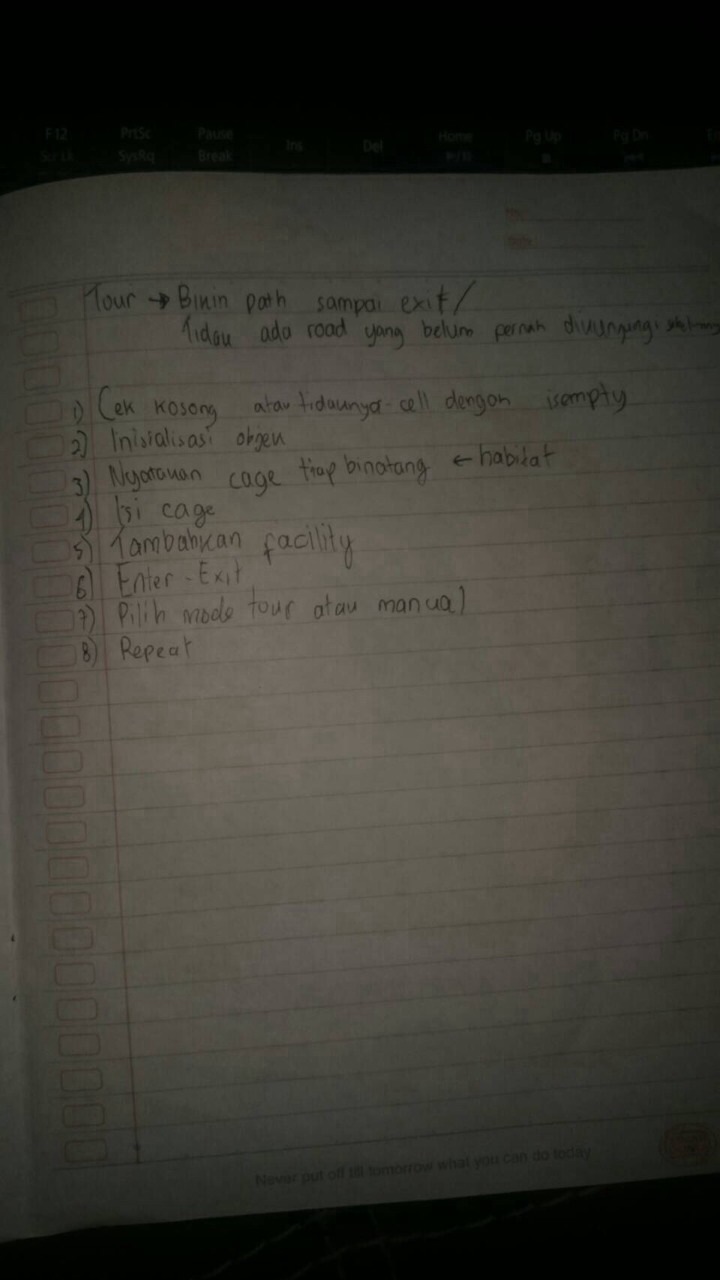 F12 PrtSc Pause Ins Del Home Pg Up Pg Dn
SysRq Break
Tour → Bikin path sampai exit/
Tidak ada road yang belum pernah dikunjungi
1) Cek kosong atau tidaknya cell dengan isempty
2) Inisialisasi objek
3) Nyatakan cage tiap binatang ← habitat
4) Isi cage
5) Tambahkan facility
6) Enter - Exit
7) Pilih mode tour atau manual
8) Repeat
Never put off till tomorrow what you can do today